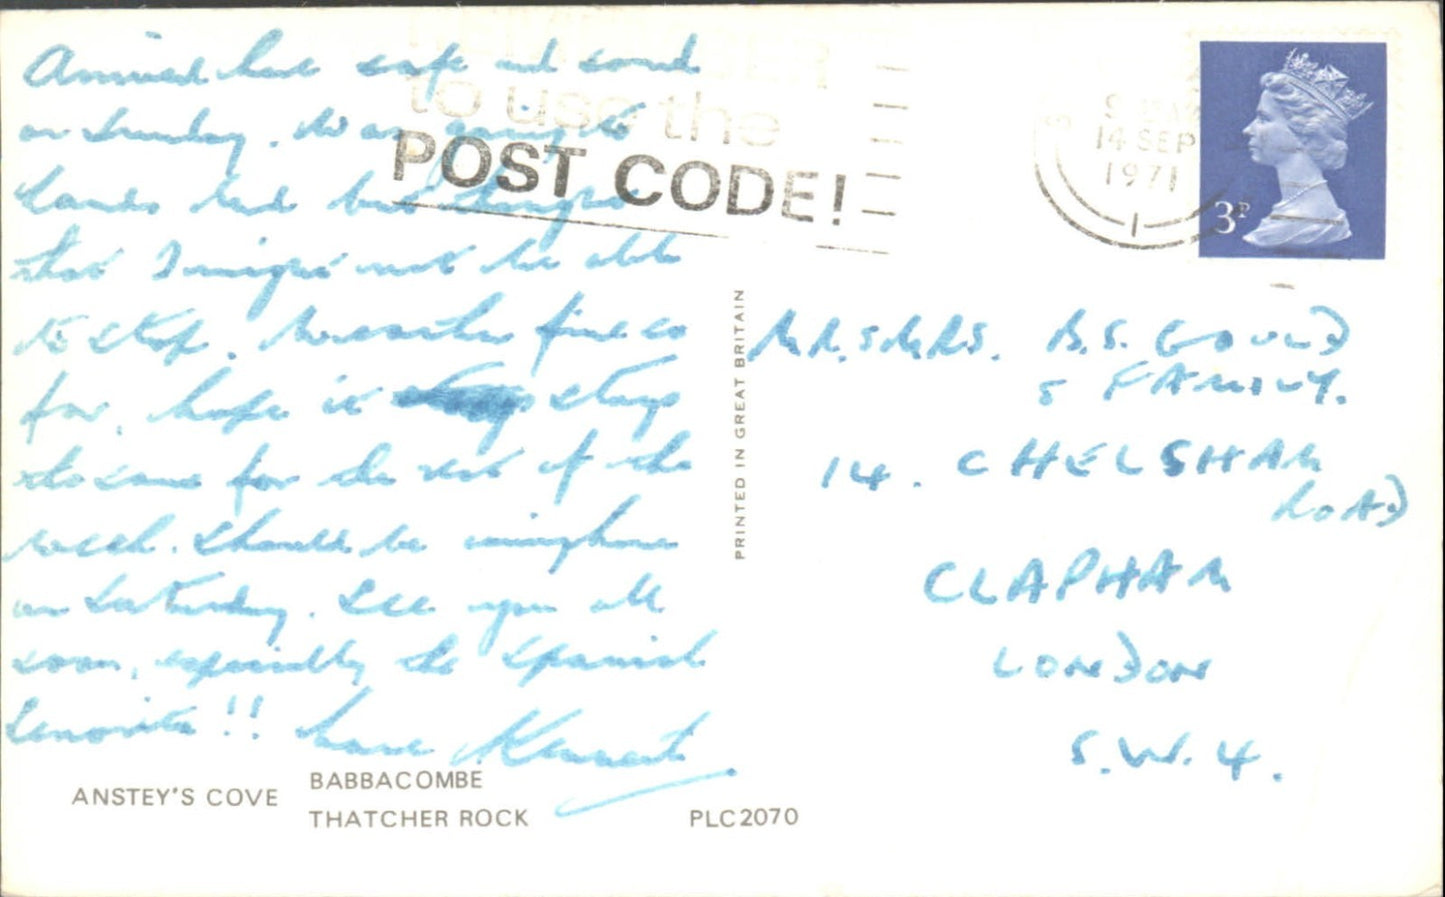 Arrived here safe and sound
on Sunday. Was going to
Lands End but thought
that I might not be able
to stop. Weather fine so
for, hope it stays
the same for the rest of the
week. Should be home
on Saturday. See you all
soon, especially the Spanish
Senorita!! Love Kenneth
to use the
POST CODE!
14 SEP
1971
3P
MR. & MRS. B.S. GOULD
& FAMILY.
14. CHELSHAM
ROAD
CLAPHAM
LONDON
S.W.4.
PRINTED IN GREAT BRITAIN
ANSTEY'S COVE
BABBACOMBE
THATCHER ROCK
PLC2070